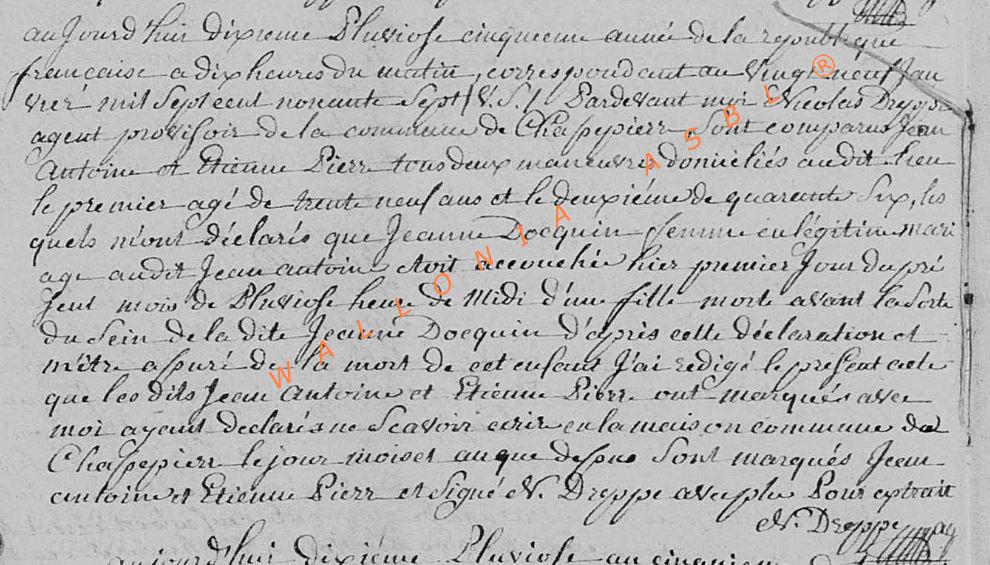 aujourd'hui dixieme Pluviose cinqieme année de la republique
francaise a dix heures du matin, correspondant au vingt neuf Jan
vier mil sept cent nonante sept (V.S.) Pardevant moi Nicolas Dreppe
agent provisoir de la commune de Chafepierr sont comparus Jean
Antoine et Etienne Pierr tous deux maneuvre domiciliés audit lieu
le premier agé de trente neuf ans et le deuxiéme de quarante six, les
quels m'ont déclarés que Jeanne Docquin femme en légitime mari
age audit Jean antoine Avoit accouchée hier premier Jour du pré
sent mois de Pluviose heure de Midi d'une fille morte avant la Sorte
du Sein de la dite Jeanne Docquin d'après cette déclaration et
m'étre assuré de la mort de cet enfant J'ai redigé le présent acte
que les dits Jean Antoine et Etienne Pierr ont marqués avec
moi ayant declarés ne Scavoir ecrir en la maison commune de
Chafepierr le jour mois et an que dessus Sont marqués Jean
antoine et Etienne Pierr et Signé N. Dreppe avec Pour extrait
N. Dreppe ag
aujourd'hui dixiéme Pluviose an cinquiem
WALLONIA ASBL ®